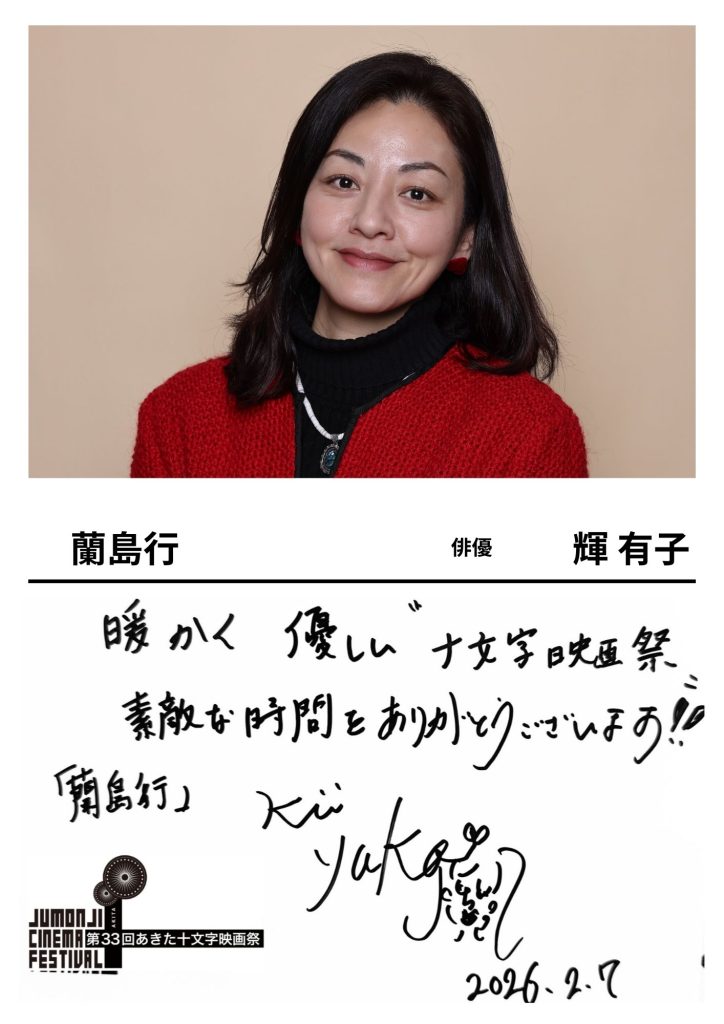 蘭島行 俳優 輝 有子
暖かく 優しい〝十文字映画祭〟
素敵な時間をありがとうございます!!
「蘭島行」
Kii
yuka
JUMONJI
CINEMA
FESTIVAL
AKITA
第33回あきた十文字映画祭
2026.2.7